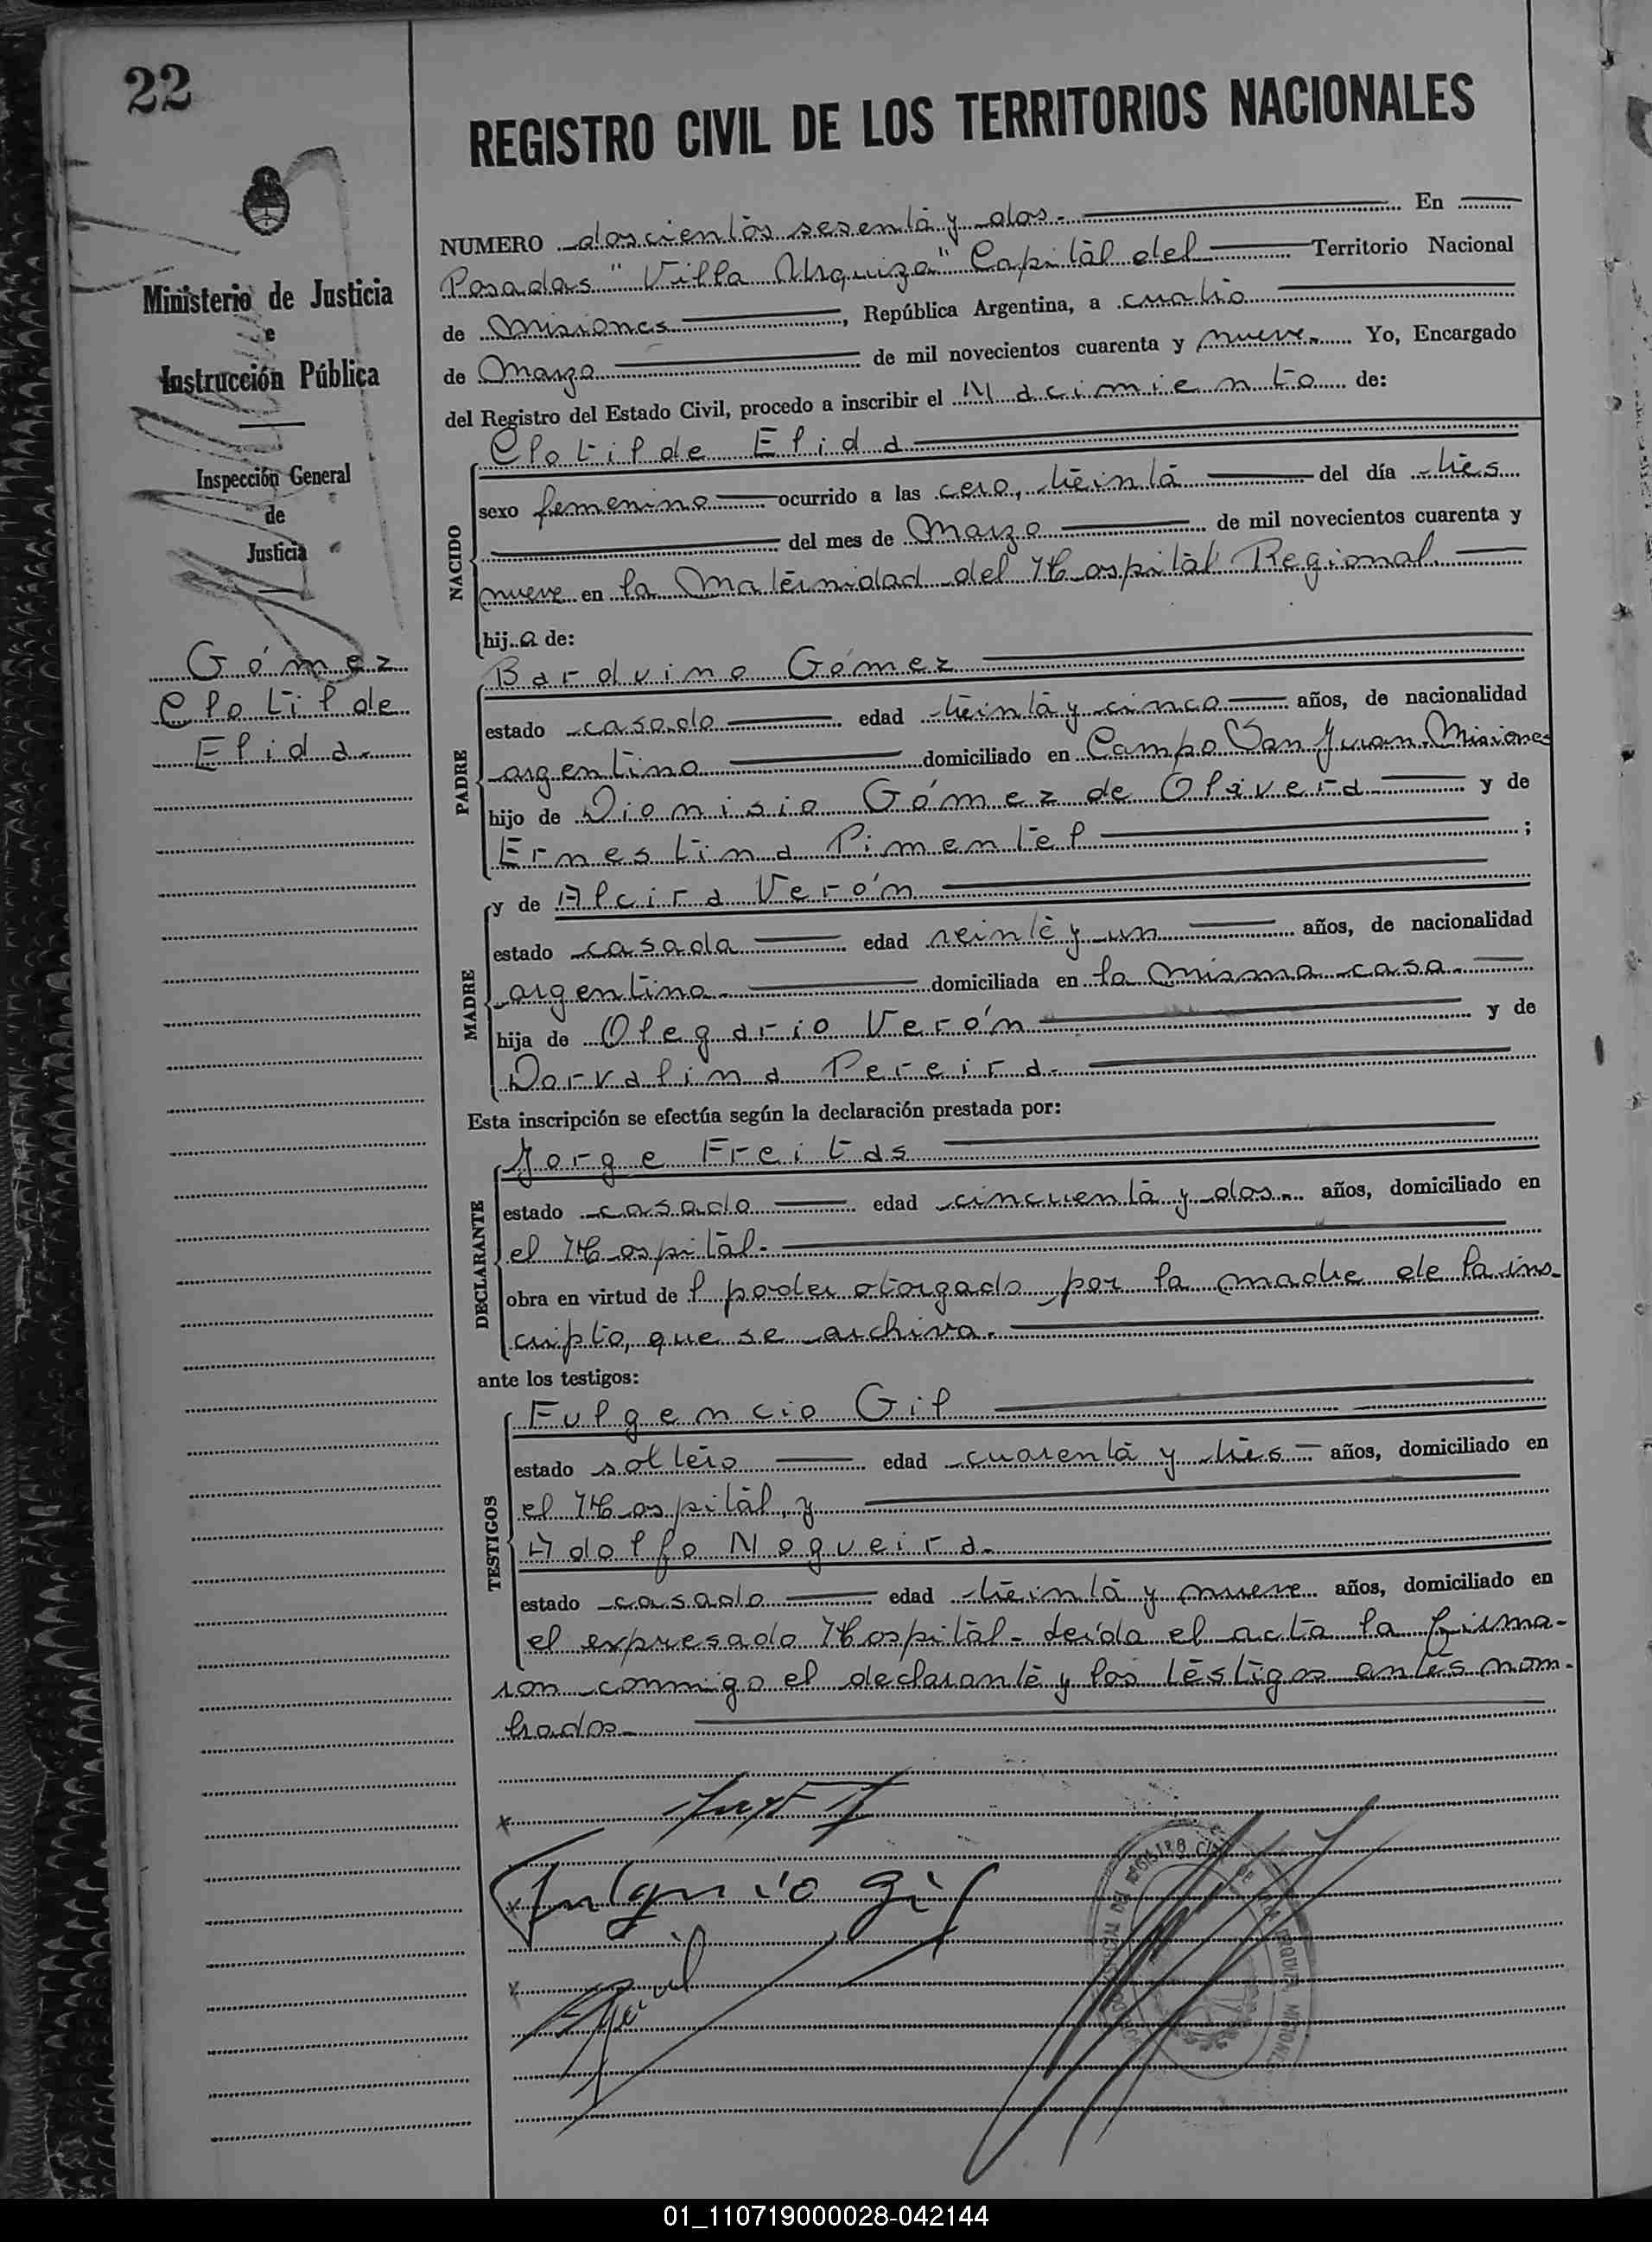 22
REGISTRO CIVIL DE LOS TERRITORIOS NACIONALES
Ministerio de Justicia
e
Instrucción Pública
Inspección General
de
Justicia
Gómez
Clotilde
Elida.
NUMERO doscientos sesenta y dos. En
Posadas "Villa Urquiza" Capital del Territorio Nacional
de Misiones, República Argentina, a cuatro
de Marzo de mil novecientos cuarenta y nueve. Yo, Encargado
del Registro del Estado Civil, procedo a inscribir el Nacimiento de:
NACIDO
Clotilde Elida
sexo femenino ocurrido a las cero, treinta del día tres
del mes de Marzo de mil novecientos cuarenta y
nueve en la Maternidad del Hospital Regional.
hij a de:
PADRE
Barduino Gómez
estado casado edad treinta y cinco años, de nacionalidad
argentino domiciliado en Campo San Juan. Misiones
hijo de Dionisio Gómez de Olivera y de
Ernestina Pimentel ;
MADRE
y de Alcira Verón
estado casada edad veinte y un años, de nacionalidad
argentina. domiciliada en la misma casa.
hija de Olegario Verón y de
Dorvalina Pereira.
Esta inscripción se efectúa según la declaración prestada por:
DECLARANTE
Jorge Freitas
estado casado edad cincuenta y dos. años, domiciliado en
el Hospital.
obra en virtud de l poder otorgado por la madre de la ins-
cripta, que se archiva.
ante los testigos:
TESTIGOS
Fulgencio Gil
estado soltero edad cuarenta y tres años, domiciliado en
el Hospital, y
Adolfo Nogueira.
estado casado edad treinta y nueve años, domiciliado en
el expresado Hospital. Leída el acta la firma-
ron conmigo el declarante y los testigos antes nom-
brados.
Fulgencio Gil
01_110719000028-042144